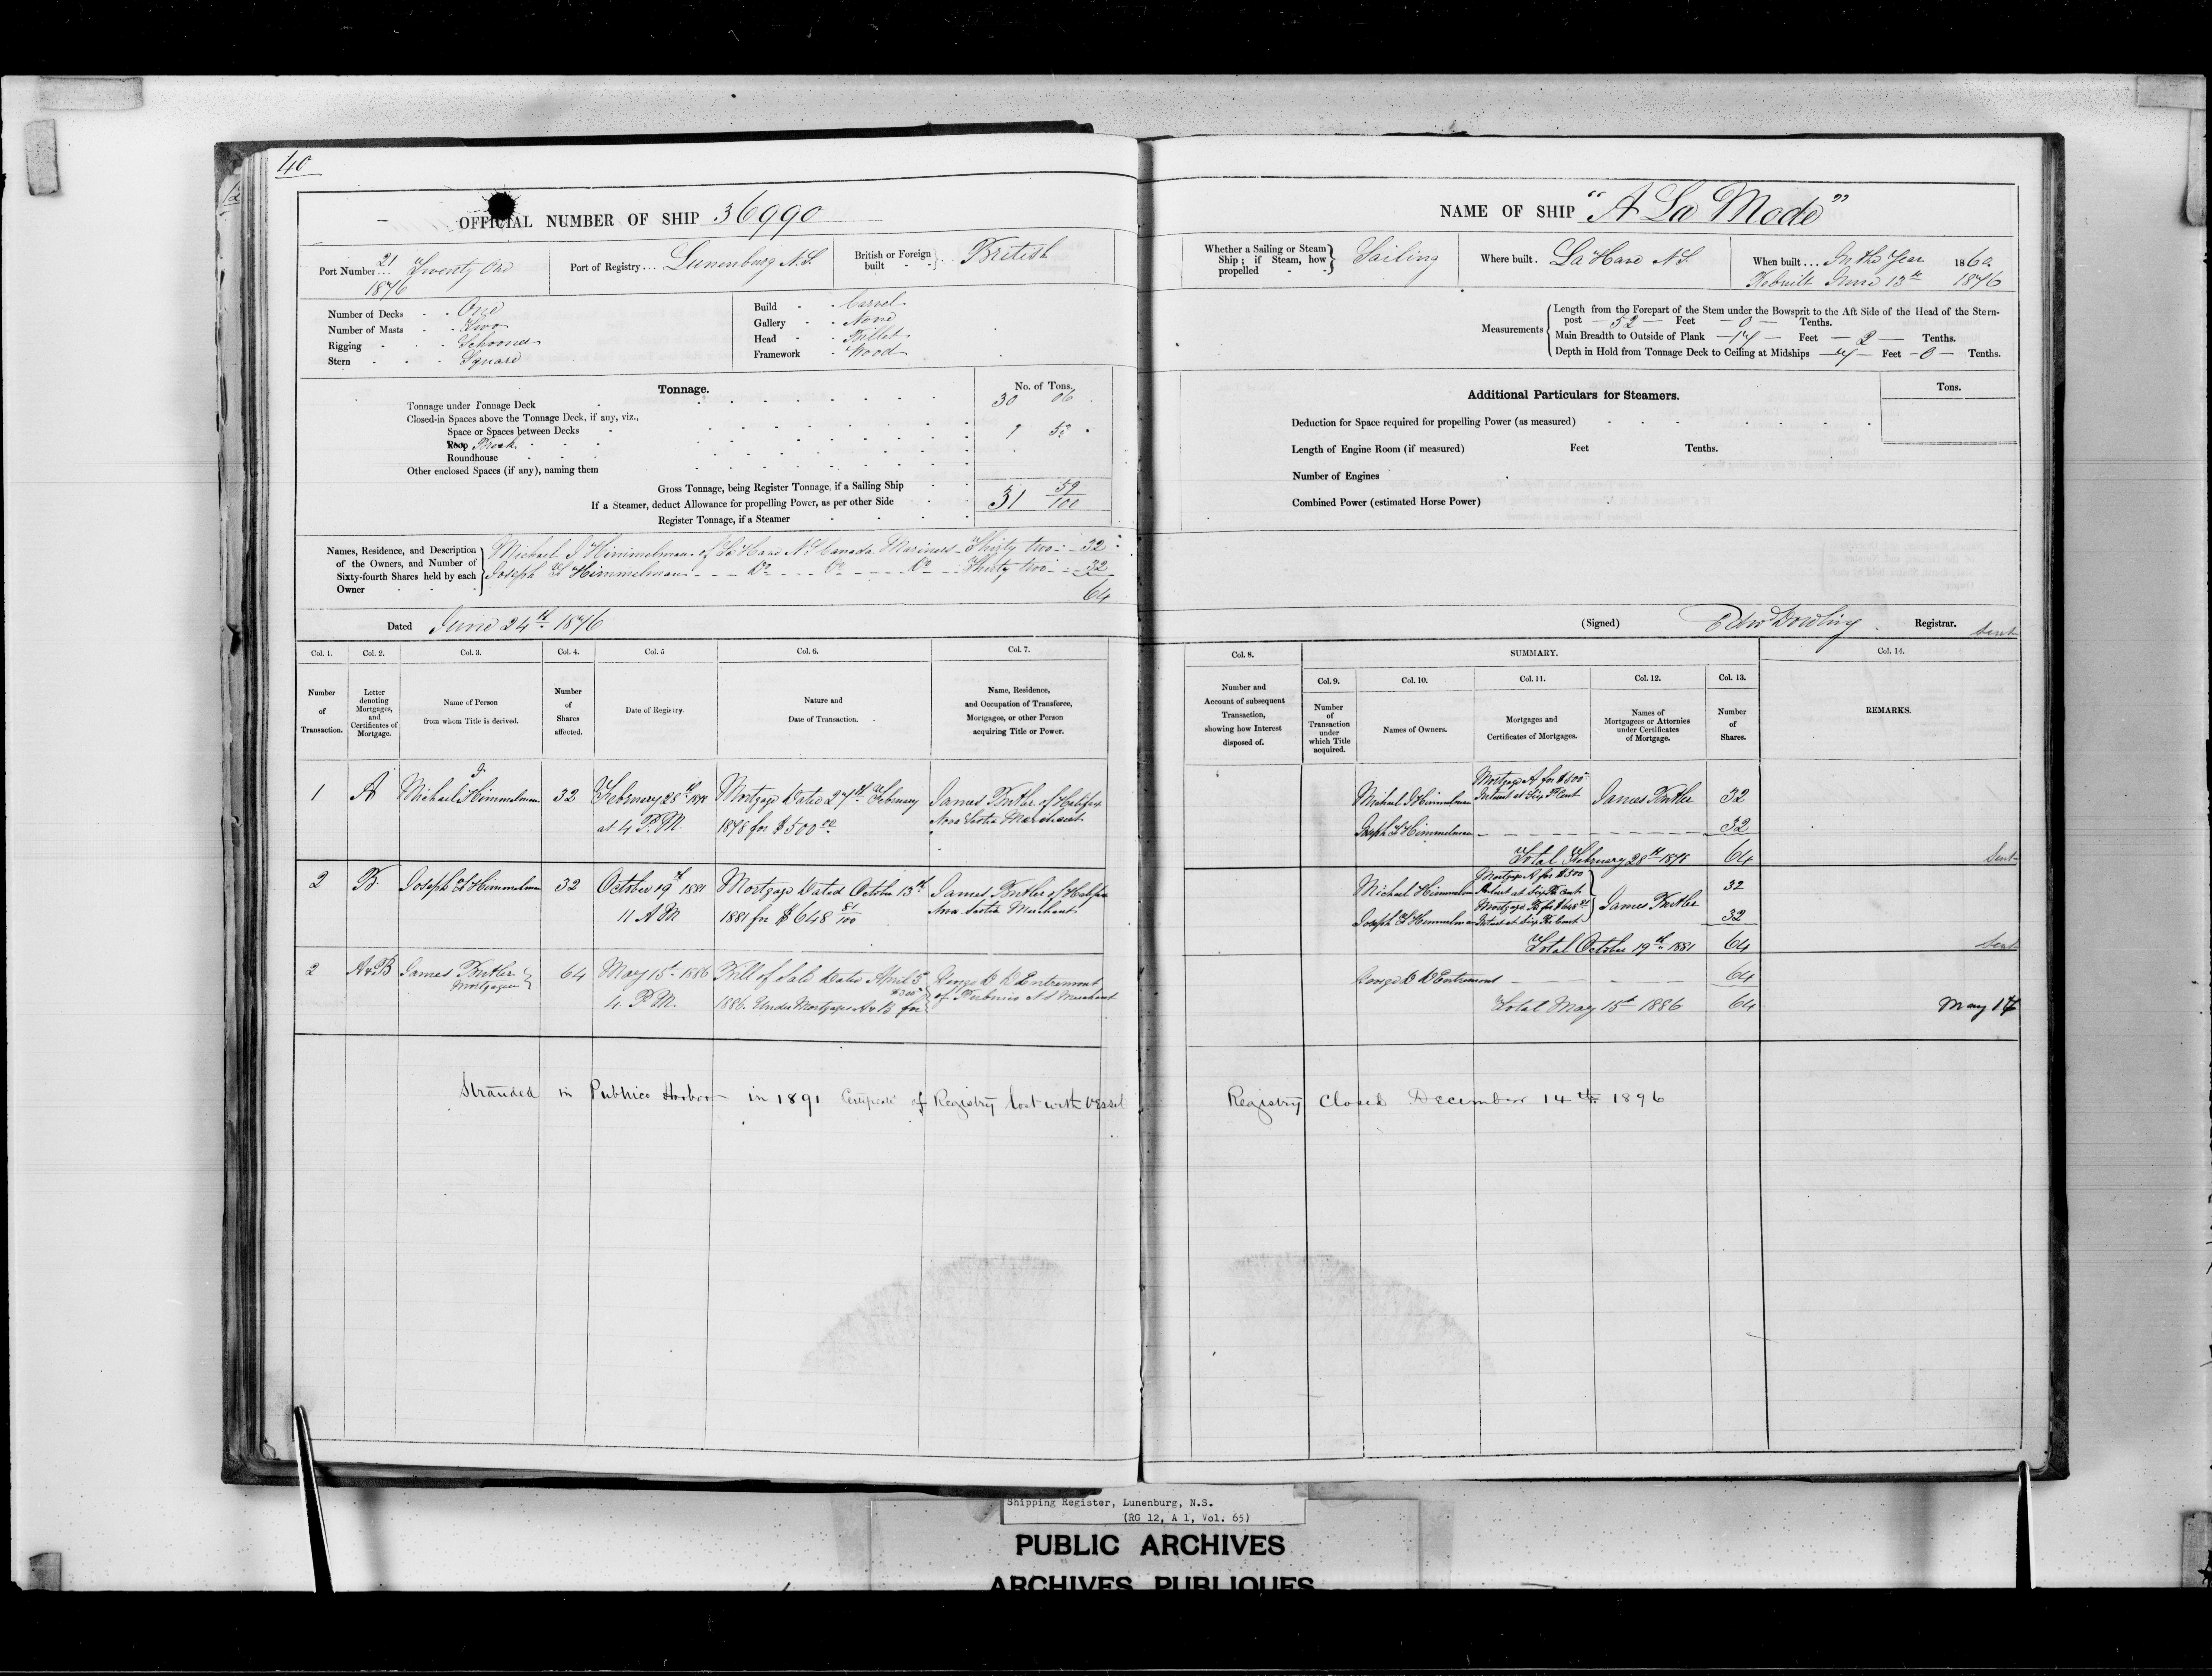 40
OFFICIAL NUMBER OF SHIP 36990
Port Number... 21 Twenty One
1876
Port of Registry... Lunenburg N.S.
British or Foreign built } British
Number of Decks - - One
Number of Masts - - Two
Rigging - - - Schooner
Stern - - - Square
Build - - Carvel
Gallery - - None
Head - - Billet
Framework - Wood
Tonnage.
No. of Tons.
Tonnage under Tonnage Deck 30 06
Closed-in Spaces above the Tonnage Deck, if any, viz.,
Space or Spaces between Decks
Poop 1 53
Roundhouse
Other enclosed Spaces (if any), naming them
Gross Tonnage, being Register Tonnage, if a Sailing Ship 31 59/100
If a Steamer, deduct Allowance for propelling Power, as per other Side
Register Tonnage, if a Steamer
Names, Residence, and Description of the Owners, and Number of Sixty-fourth Shares held by each Owner
Michael J Himmelman of La Have N S Canada Mariners Thirty two 32
Joseph Himmelman Do Do Do Thirty two 32
64
Dated June 24th 1876
Col. 1. Col. 2. Col. 3. Col. 4. Col. 5 Col. 6. Col. 7.
Number of Transaction.
Letter denoting Mortgages, and Certificates of Mortgage.
Name of Person from whom Title is derived.
Number of Shares affected.
Date of Registry.
Nature and Date of Transaction.
Name, Residence, and Occupation of Transferee, Mortgagee, or other Person acquiring Title or Power.
1 A Michael J Himmelman 32 February 28th 1878 at 4 P.M. Mortgage Dated 27th February 1878 for $500 00 James Butler of Halifax Nova Scotia Merchant
2 B. Joseph Himmelman 32 October 19th 1881 11 A M Mortgage Dated October 13th 1881 for $648 81/100 James Butler of Halifax Nova Scotia Merchant
2 A & B James Butler Mortgagee 64 May 15th 1886 4 P.M. Bill of Sale Dated April 5th 1886. Under Mortgages A & B for $300 George D D'Entremont of Pubnico N S Merchant
Stranded in Pubnico Harbor in 1891 Certificate of Registry lost with vessel
NAME OF SHIP "A La Mode"
Whether a Sailing or Steam Ship; if Steam, how propelled } Sailing
Where built. La Have N.S.
When built... In the Year 1860
Rebuilt June 13th 1876
Measurements
Length from the Forepart of the Stem under the Bowsprit to the Aft Side of the Head of the Stern-
post — 52 — Feet — 0 — Tenths.
Main Breadth to Outside of Plank — 17 — Feet — 2 — Tenths.
Depth in Hold from Tonnage Deck to Ceiling at Midships — 7 — Feet — 0 — Tenths.
Additional Particulars for Steamers.
Tons.
Deduction for Space required for propelling Power (as measured)
Length of Engine Room (if measured) Feet Tenths.
Number of Engines
Combined Power (estimated Horse Power)
(Signed) Edw Dowling Registrar.
Sent
Col. 8. SUMMARY. Col. 14.
Col. 9. Col. 10. Col. 11. Col. 12. Col. 13.
Number and Account of subsequent Transaction, showing how Interest disposed of.
Number of Transaction under which Title acquired.
Names of Owners.
Mortgages and Certificates of Mortgages.
Names of Mortgagees or Attornies under Certificates of Mortgage.
Number of Shares.
REMARKS.
Michael J Himmelman Mortgage A for $500 Interest at Six P Cent James Butler 32
Joseph Himmelman 32
Total February 28th 1878 64 Sent
Michael Himmelman Mortgage A for $500 Interest at Six P Cent James Butler 32
Joseph Himmelman Mortgage B for $648 81 Interest at Six P Cent 32
Total October 19th 1881 64 Sent
George D D'Entremont 64
Total May 15th 1886 64 May 17
Registry Closed December 14th 1896
Shipping Register, Lunenburg, N.S.
(RG 12, A 1, Vol. 65)
PUBLIC ARCHIVES
ARCHIVES PUBLIQUES